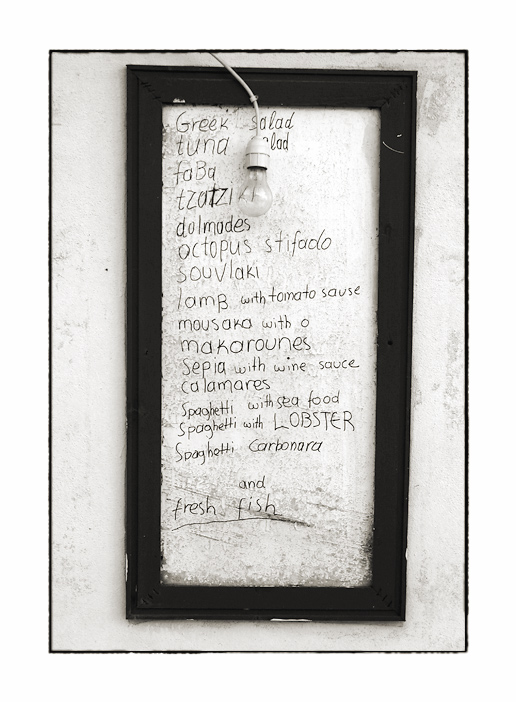 Greek salad
tuna salad
faBa
tzatziki
dolmades
octopus stifado
souvlaki
lamb with tomato sause
mousaka with o
makarounes
sepia with wine sauce
calamares
Spaghetti with sea food
Spaghetti with LOBSTER
Spaghetti Carbonara
and
fresh fish